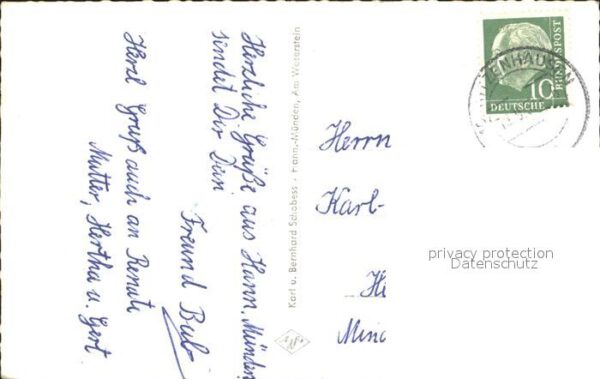 Herzliche Grüße aus Hann. Münden
sindet Dir Dein
Freund Bub
Herzl Gruß auch an Renate
Mutter, Hertha u. Gert
Karl u. Bernhard Schobess · Hann.-Münden, Am Weserstein
Herrn
Karl-
Mind
DEUTSCHE
BUNDESPOST
10
privacy protection
Datenschutz